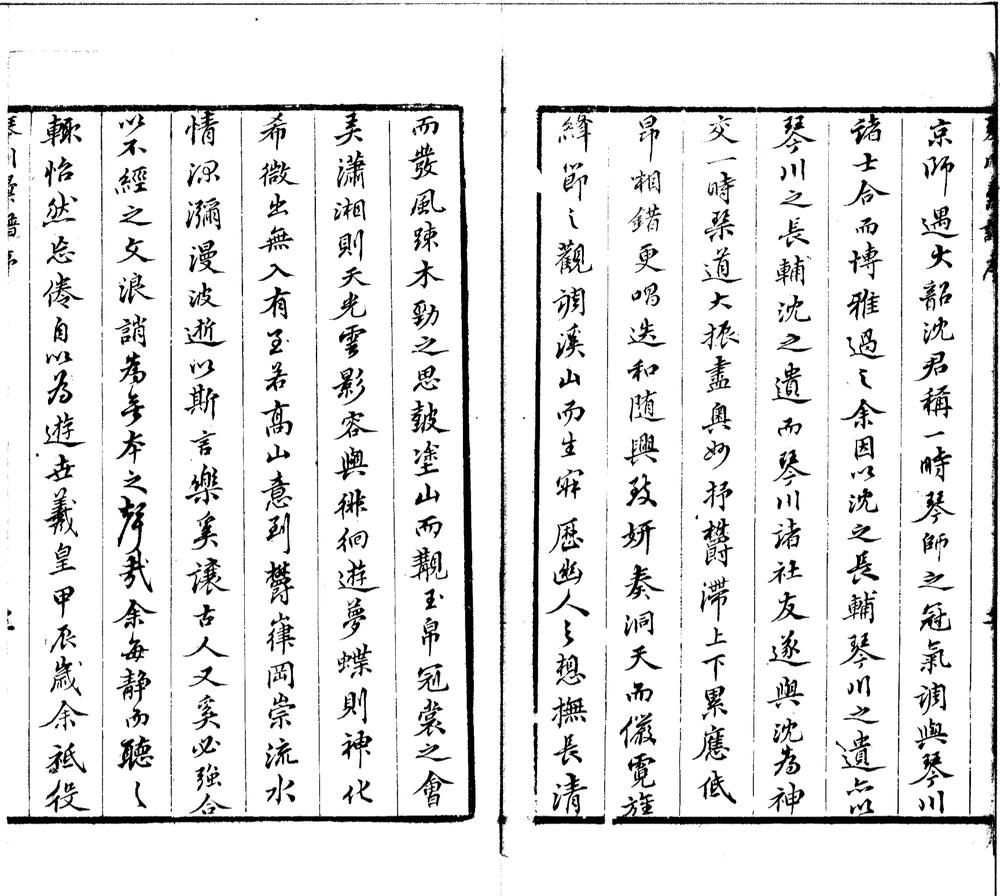 京師遇大韶沈君稱一時琴師之冠氣調與琴川
諸士合而博雅過之余因以沈之長輔琴川之遺亦以
琴川之長輔沈之遺而琴川諸社友遂與沈為神
交一時琴道大振盡奥妙抒欝滯上下累應低
昂相錯更唱迭和随興致妍奏洞天而儼霓旌
絳節之觀調溪山而生寤歷幽人之想撫長清
而發風踈木勁之思鼓塗山而覩玉帛冠裳之會
美瀟湘則天光雲影容與徘徊遊夢蝶則神化
希微出無入有至若高山意到欝嵂岡崇流水
情深瀰漫波逝以斯言樂奚讓古人又奚必強合
以不經之文浪誚為無本之聲哉余每静而聽之
輙怡然忘倦自以為遊世羲皇甲辰歲余祗役
琴川譜序